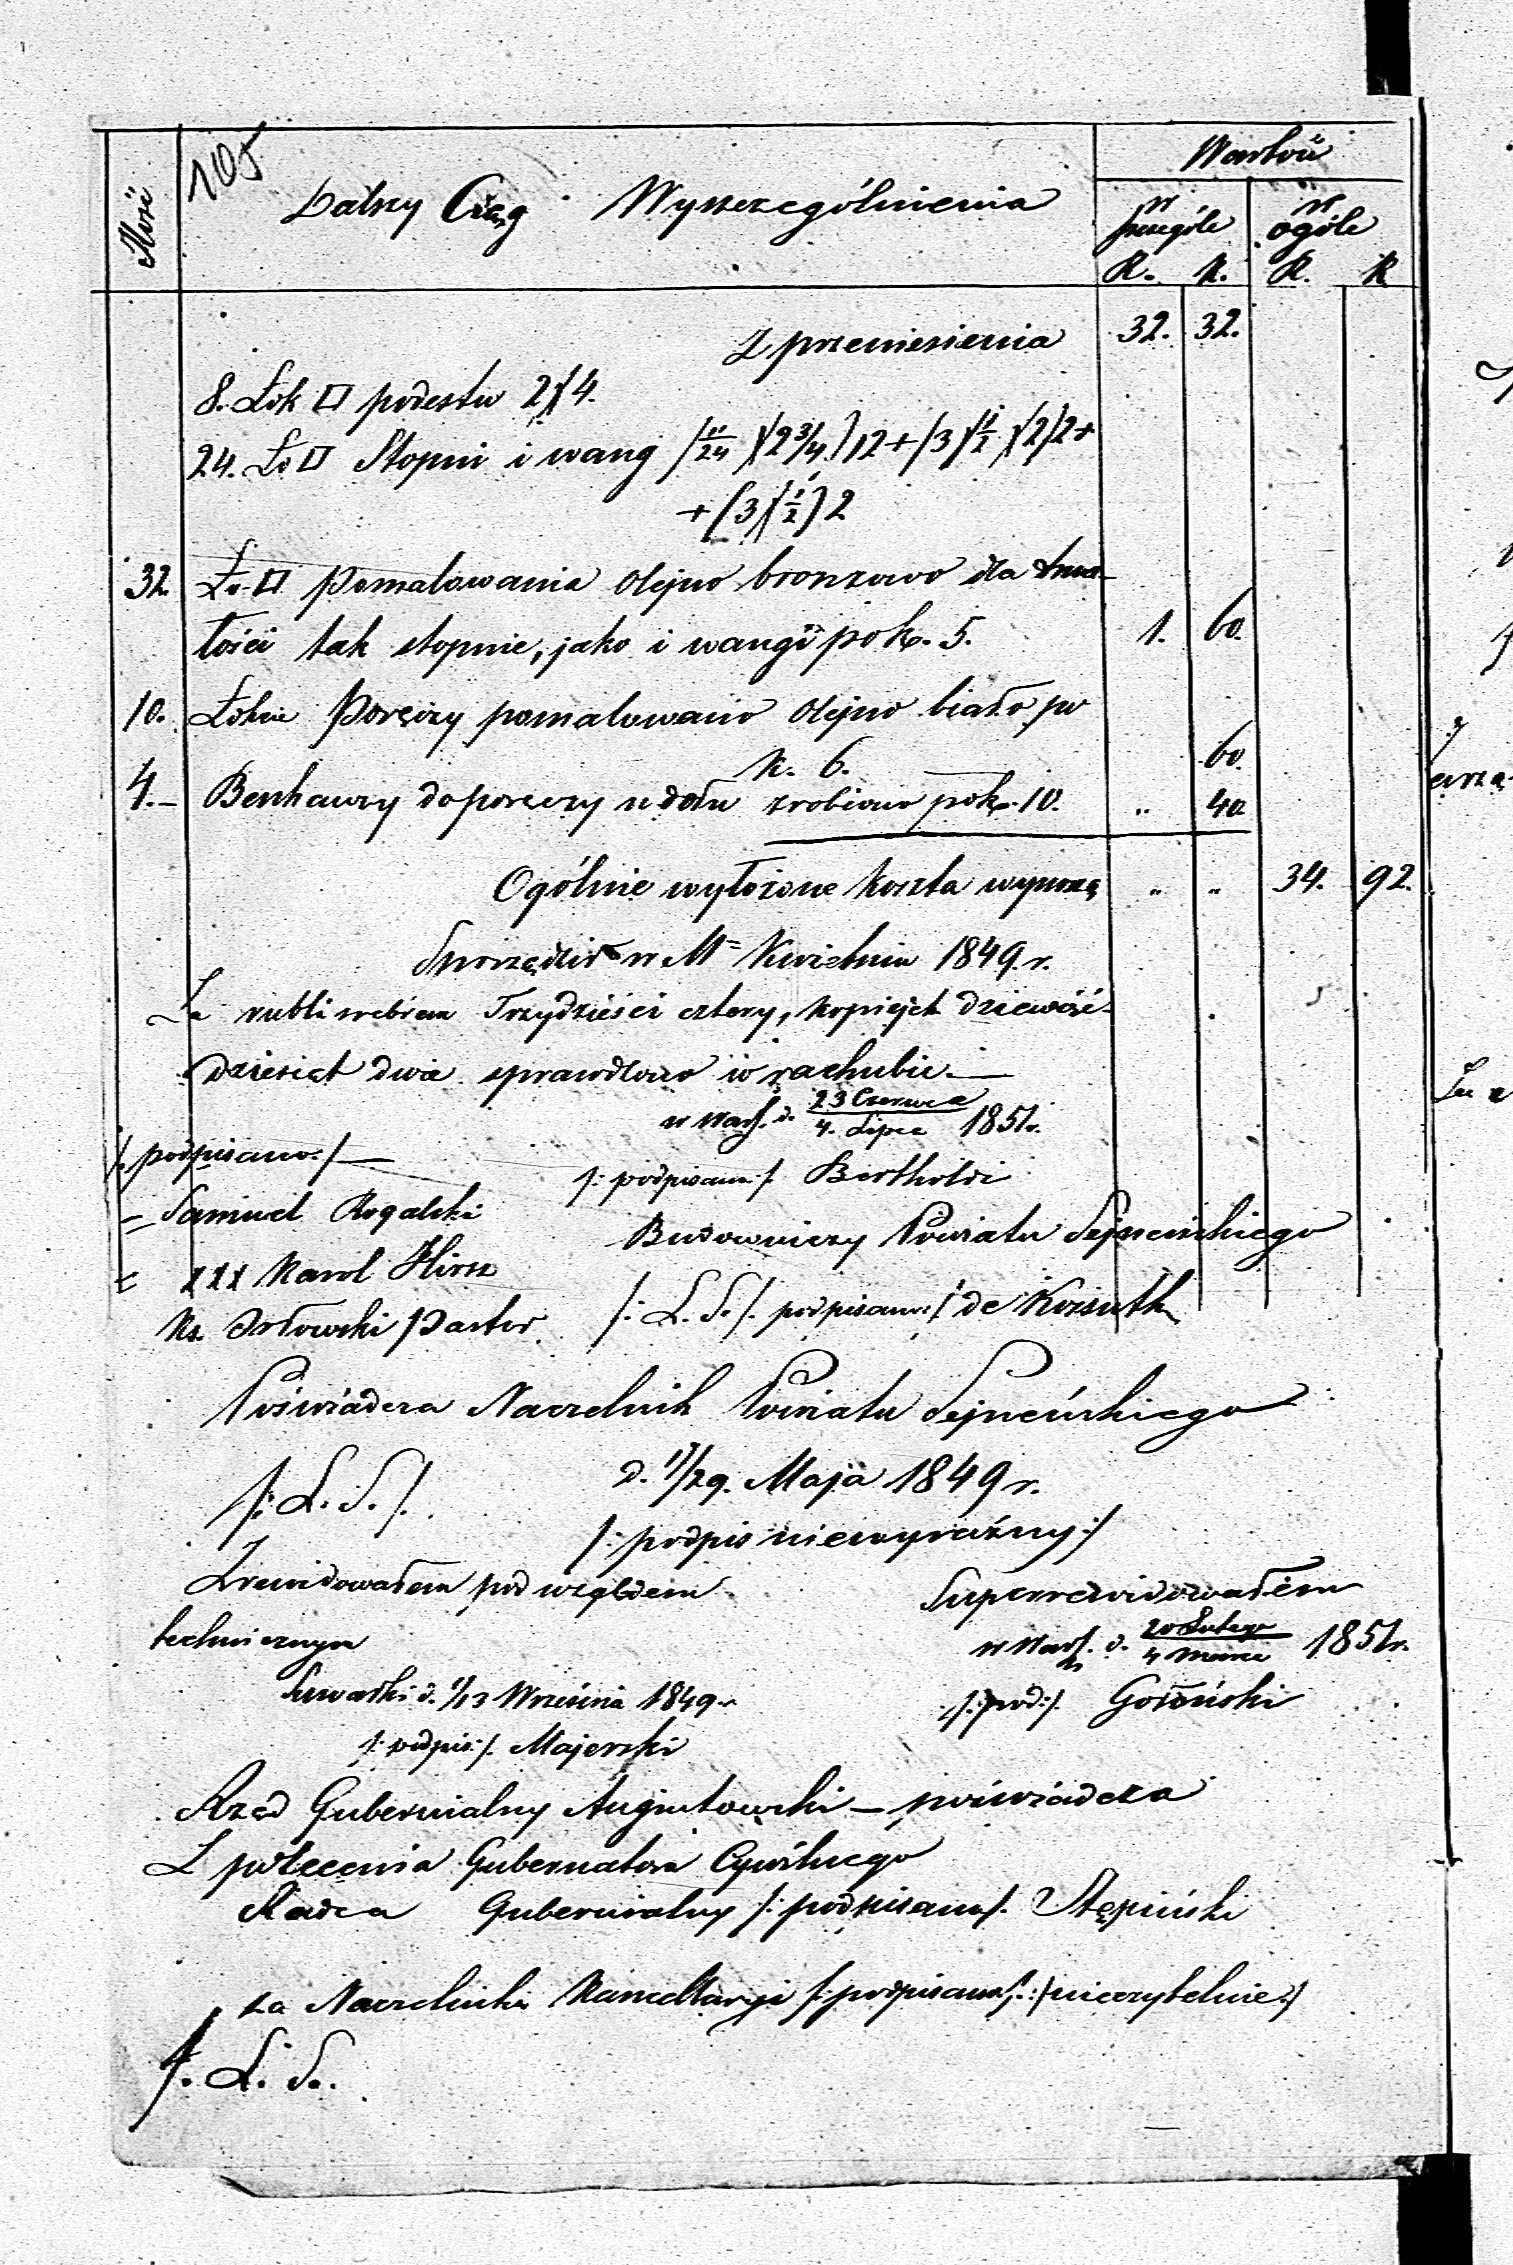 105
Ilość
Dalszy Ciąg Wyszczególnienia
Wartość
w szczególe
w ogóle
R. k. R. k
Z przeniesienia 32. 32.
8. Łok □ podestu 2)(4.
24. Ło □ Stopni i wang (11/24 )(2 3/4) 12+(3)(1/2)(2)2+
+(3)(1/2)2
32. Ło □ Pomalowania olejno bronzowo dla trwa-
łości tak stopnie, jako i wangi po k. 5. 1. 60.
10. Łokcie Poręczy pomalowano olejno biało po
k. 6. 60.
4.- do poręczy u dołu zrobiono po k. 10. „ 40.
Ogólnie wyłożone koszta wynoszą „ „ 34. 92.
Sporządził w Mcu Kwietniu 1849. r.
Za rubli srebrem Trzydzieści cztery, kopiejek dziewięć-
dziesiąt dwie sprawdzono w rachubie.—
w Warsz. d. 23 Czerwca / 4. Lipca 1851 r.
/: podpisano :/
/: podpisano :/ Bertholdi
= Samuel Rogalski
Budowniczy Powiatu Sejneńskiego
= XXX Karol Hirsz
/: L. S. /. podpisano :/ de
Ks. Orłowski Pastor
Poświadcza Naczelnik Powiatu Sejneńskiego
d. 17/29. Maja 1849 r.
/: L. S. /.
/: podpis niewyraźny :/
Zrewidowałem pod względem
technicznym
Suwałki d. 1/13 Września 1849 r
/: podpis :/. Majerski
Superrewidowałem
w Warsz. d. 20 Lutego / 4 Marca 1851 r.
/: pod :/.
Rząd Gubernialny Augustowski — poświadcza
Z polecenia Gubernatora Cywilnego
Radca Gubernialny /: podpisano /. Stępiński
za Naczelnika Kancellaryi /: podpisano /. :/nieczytelnie :/
/. L. S.